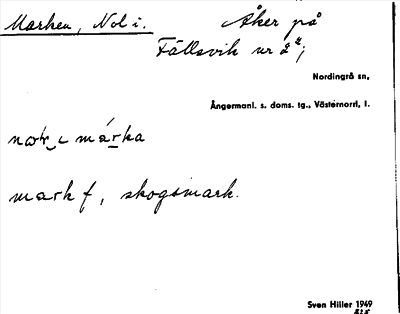 Marken, Nol i. Åker på
Fällsvik nr 2²;
Nordingrå sn,
Ångermanl. s. doms. tg., Västernorrl. l.
márka
mark f, skogsmark.
Sven Hiller 1949